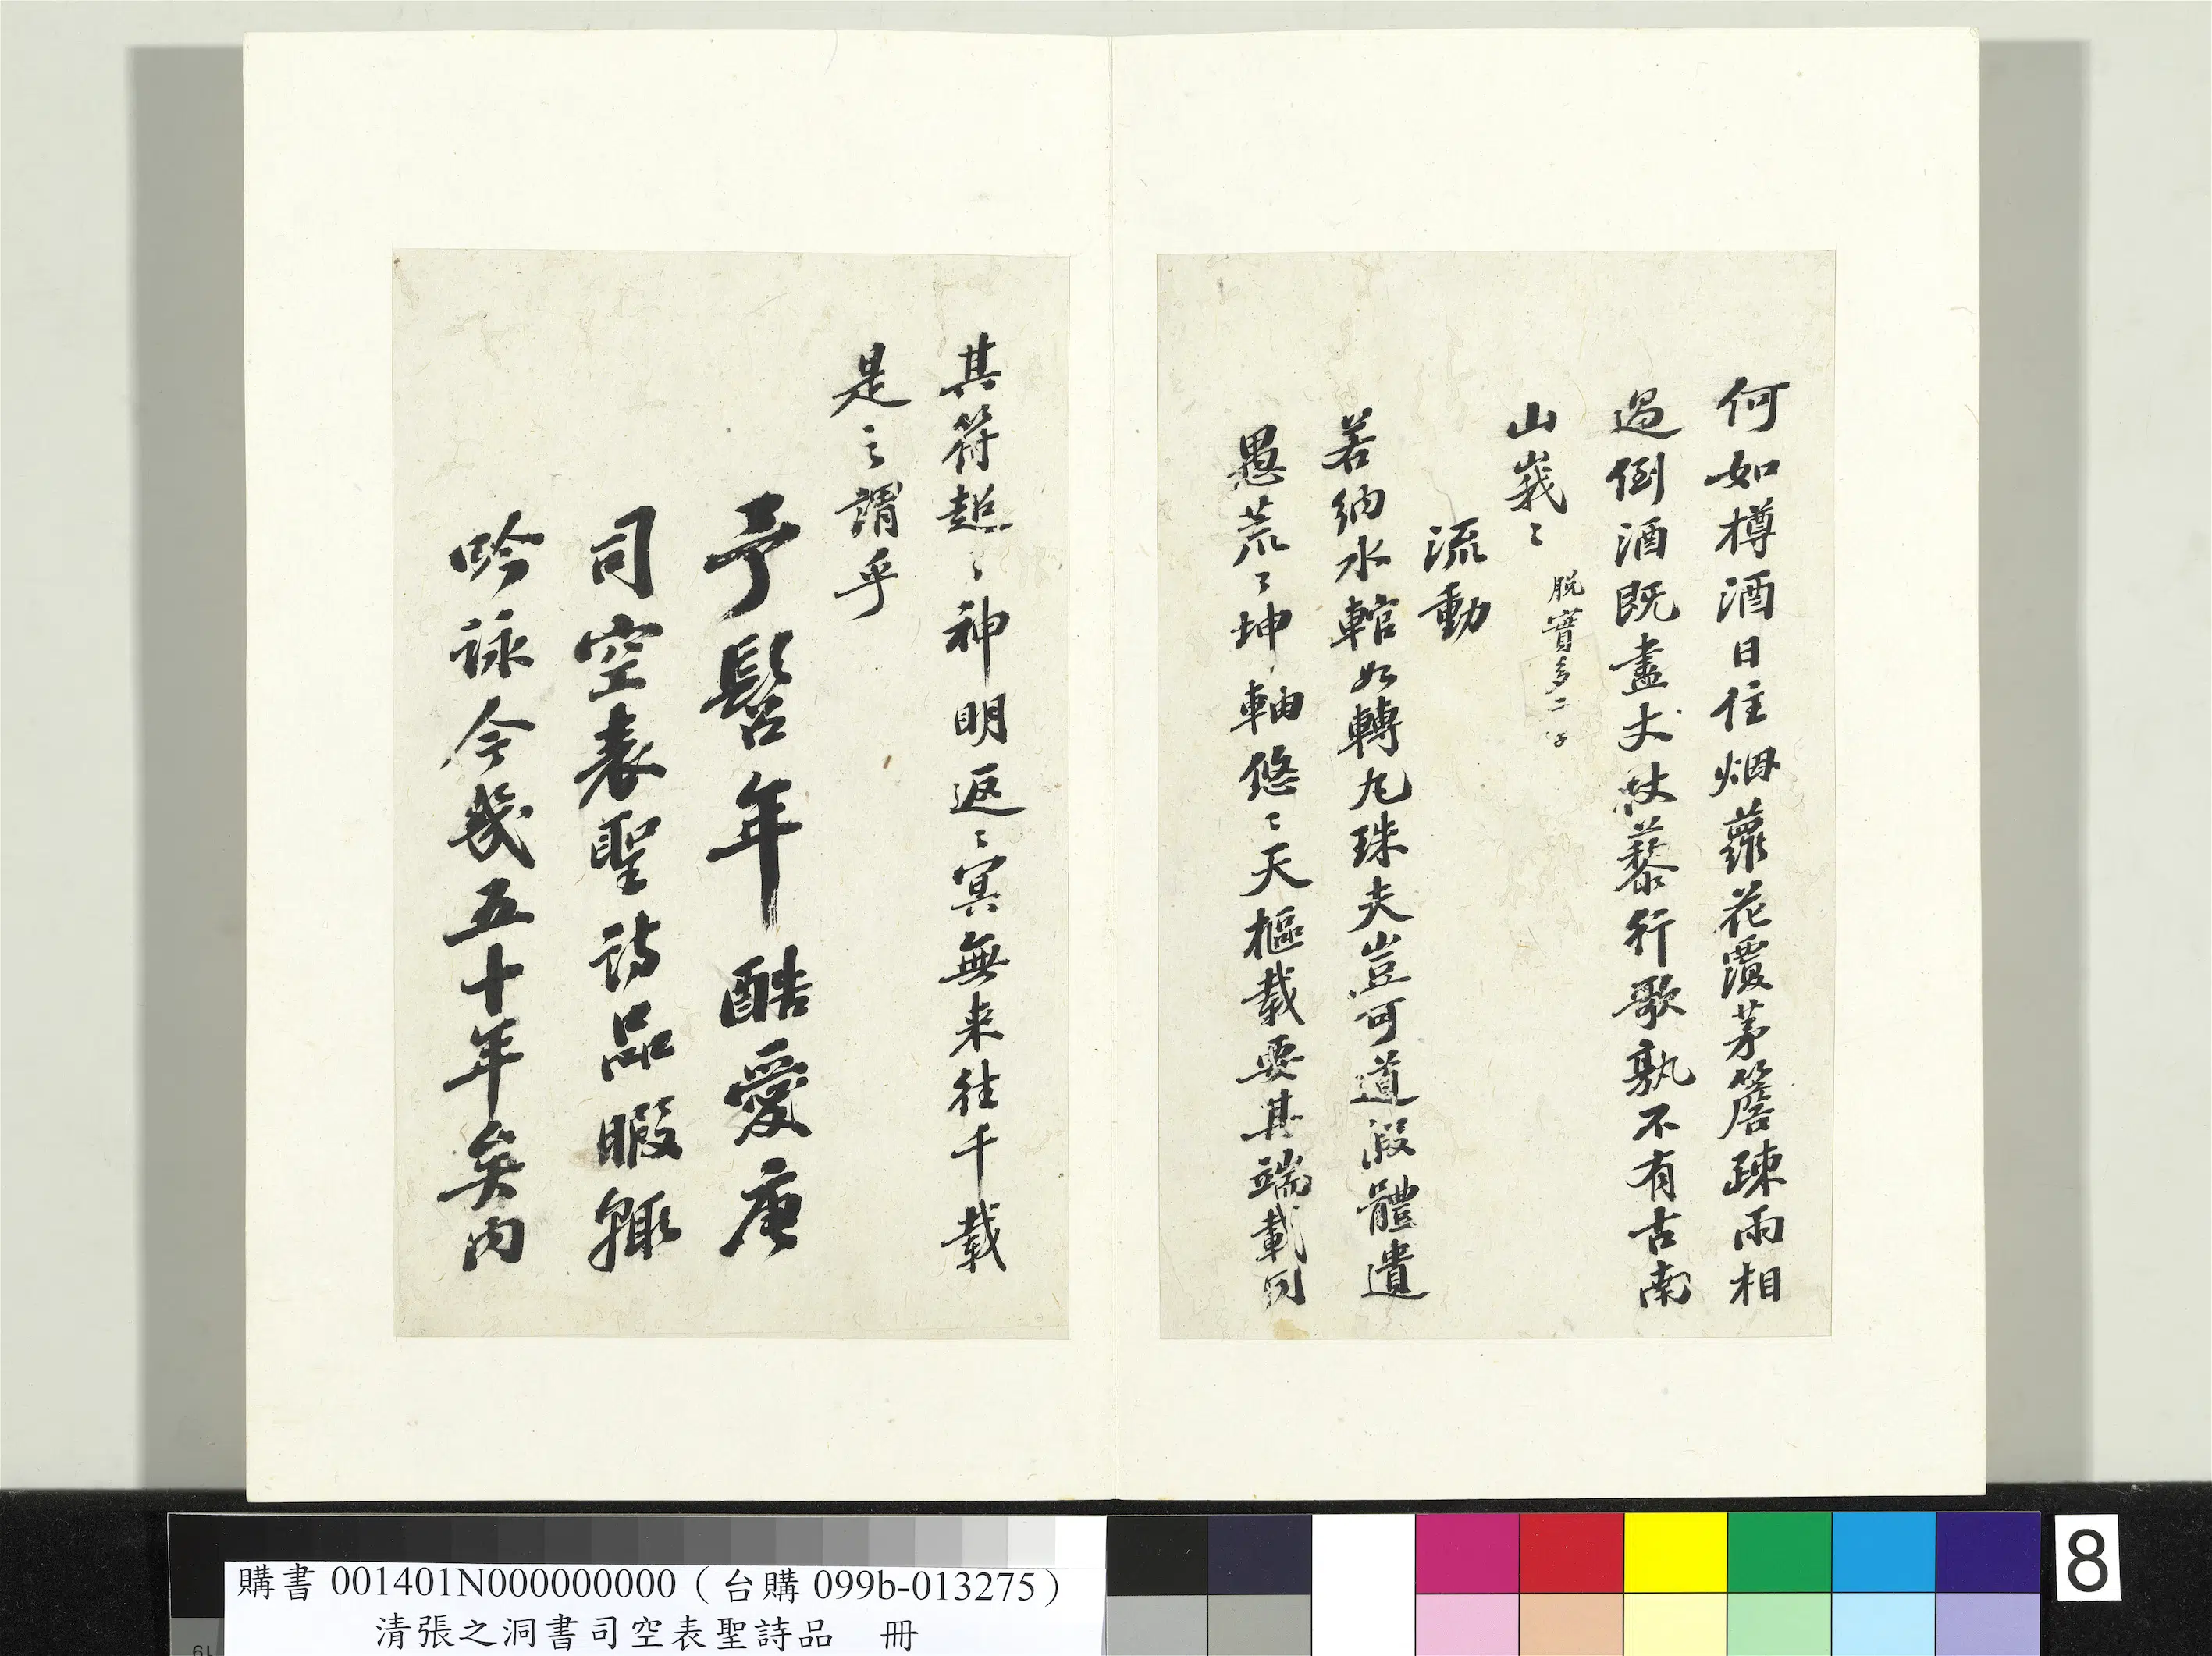 何如樽酒日住烟蘿花覆茅簷疎雨相
過倒酒既盡丈杖藜行歌孰不有古南
山峩〻
脫實多二字
流動
若納水輨如轉丸珠夫豈可道假體遺
愚荒〻坤軸悠〻天樞載要其端載同
其符超〻神明返〻冥無来往千載
是之謂乎
予髫年酷愛唐
司空表聖詩品暇輒
吟詠今幾五十年矣內
購書 001401N000000000（台購 099b-013275）
清張之洞書司空表聖詩品 冊
8
19